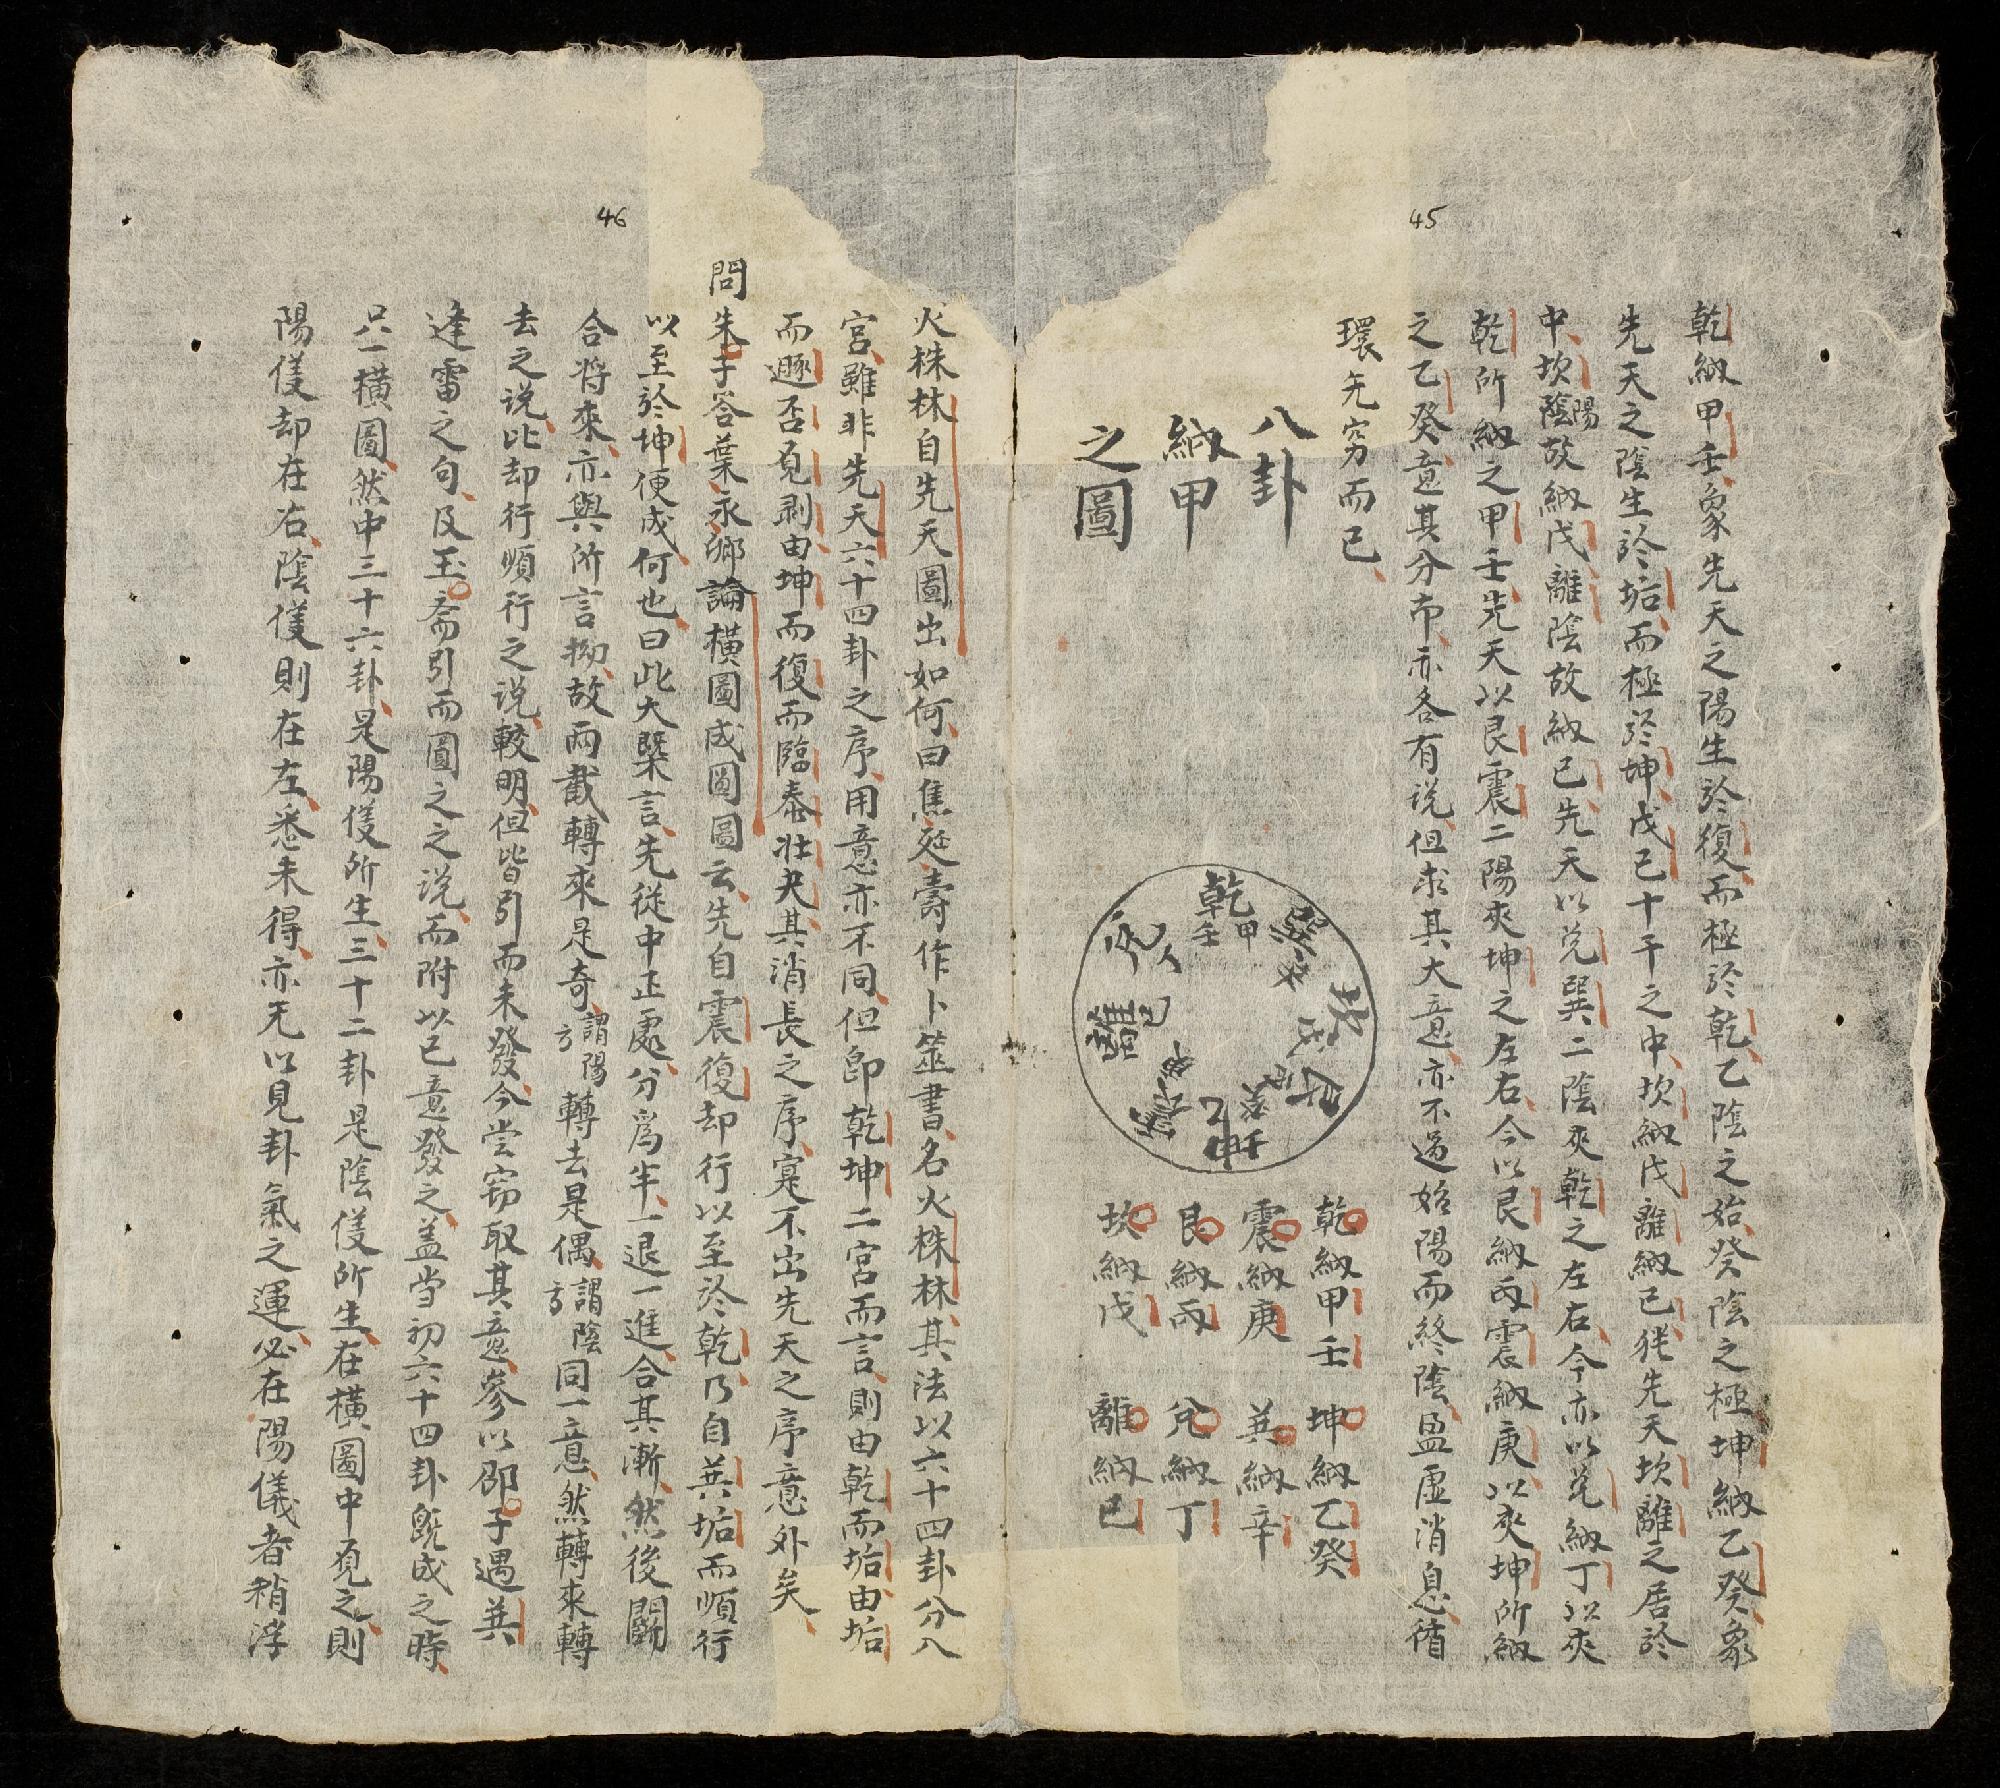 45
乾納甲壬象先天之陽生於復而極於乾乙陰之始癸陰之極坤納乙癸象
先天之陰生於垢而極於坤戊己十干之中坎納戊離納己猶先天坎離之居於
中坎陰陽故納戊離陰故納己先天以兌巽二陰夾乾之左右今亦以兌納丁以夾
乾所納之甲壬先天以艮震二陽夾坤之左右今以艮納丙震納庚以夾坤所納
之乙癸意其分布亦各有説但求其大意亦不過始陽而終陰盈虛消息循
環无窮而已
八卦
納甲
之圖
乾甲壬
離己
乾納甲壬 坤納乙癸
震納庚 巽納辛
艮納丙 兌納丁
坎納戊 離納己
46
火株林自先天圖出如何曰焦延壽作卜筮書名火株林其法以六十四卦分八
宮雖非先天六十四卦之序用意亦不同但即乾坤二宮而言則由乾而垢由垢
而遯否覔剥由坤而復而臨泰壯夬其消長之序寔不出先天之序意外矣
問朱子答葉永卿論橫圖成圓圖云先自震復却行以至於乾乃自巽垢而順行
以至於坤便成何也曰此大槩言先從中正處分爲半一退一進合其漸然後闢
合將來亦與所言拗故兩截轉來是竒謂陽方轉去是偶謂陰方同一意然轉來轉
去之説比却行順行之説較明但皆引而未發今嘗窃取其意參以邵子遇巽
逢雷之句及玉斋引而圓之之説而附以己意發之盖當初六十四卦既成之時
只一橫圖然中三十六卦是陽儀所生三十二卦是陰儀所生在橫圖中覔之則
陽儀却在右陰儀則在左悉未得亦无以見卦氣之運必在陽儀者稍浮